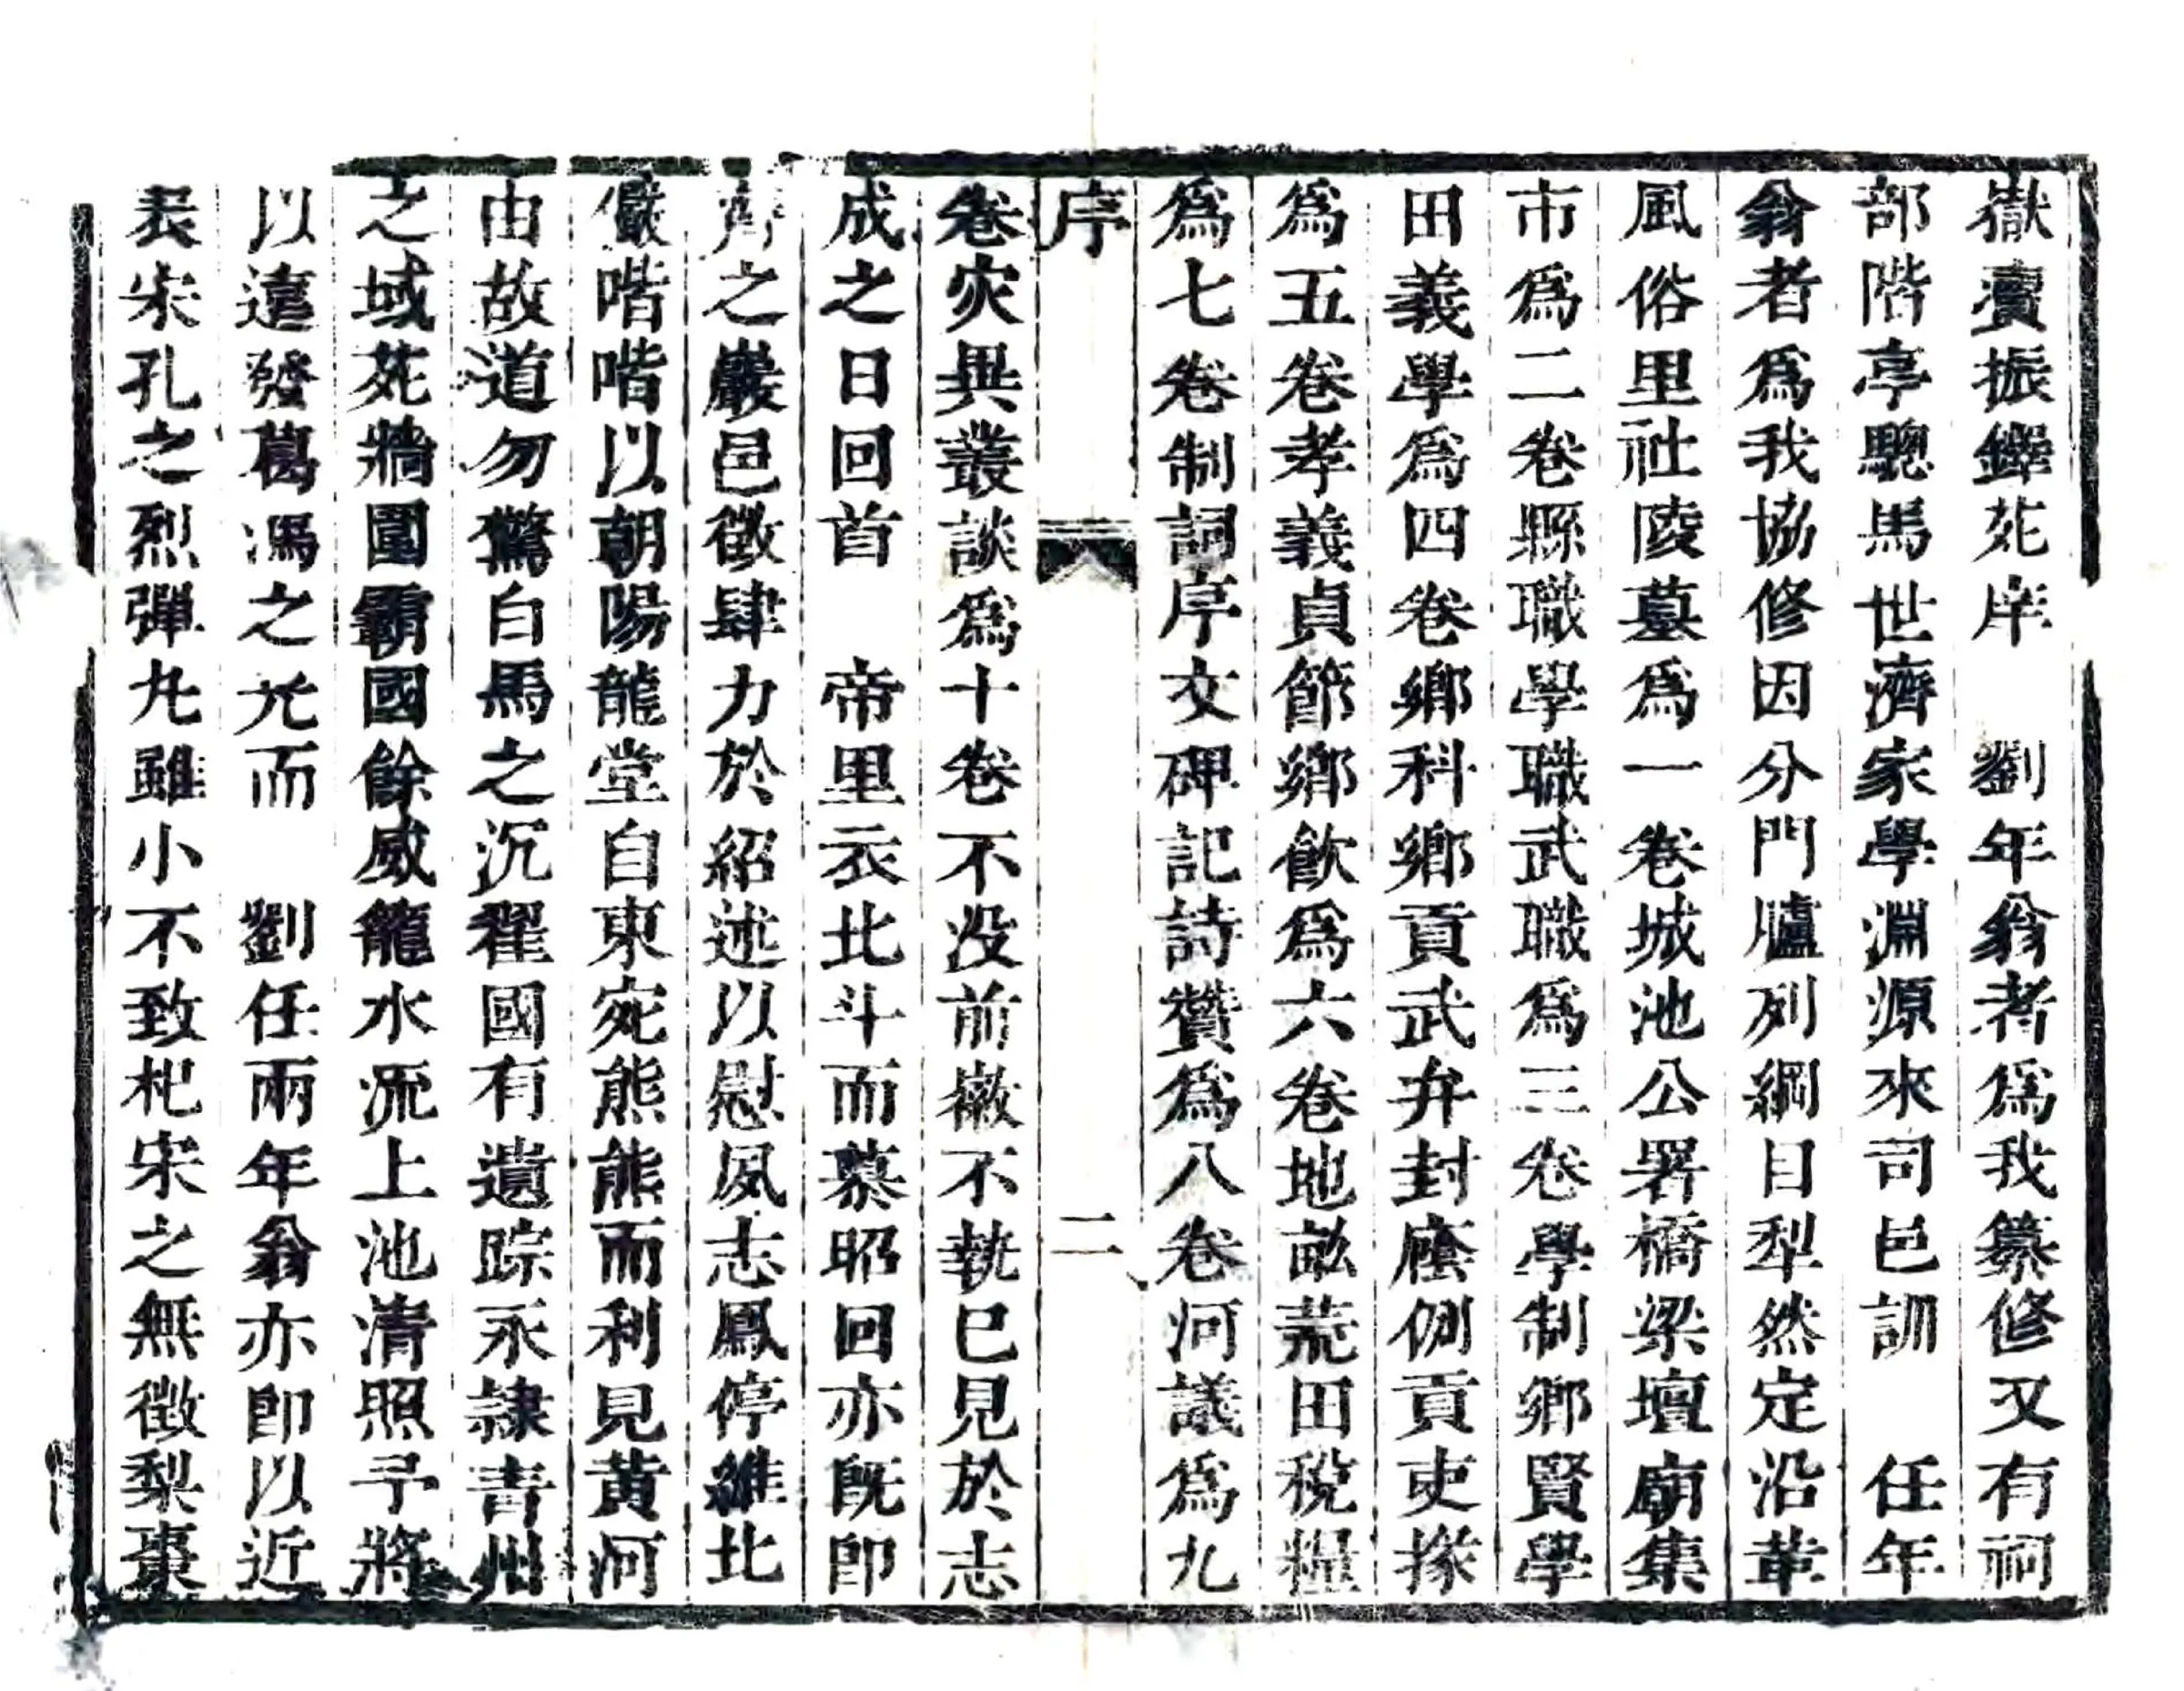 嶽賣振鐸苑庠　劉年翁者爲我纂修又有祠
部階亭驄馬世濟家學淵源來司邑訓　任年
翁者爲我協修因分門臚列綱目犁然定沿革
風俗里社陵墓爲一卷城池公署橋梁壇廟集
市爲二卷縣職學職武職爲三卷學制鄉賢學
田義學爲四卷鄉科鄉貢武弁封廕例貢吏掾
爲五卷孝義貞節鄉飲爲六卷地畝荒田税糧
爲七卷制詞序文碑記詩贊爲八卷河議爲九
序　二
卷灾異叢談爲十卷不没前徽不執已見於志
成之日回首　帝里衣北斗而慕昭回亦既卽
之巖邑徵肆力於紹述以慰夙志鳳停雒北
儼喈喈以朝陽龍堂自東宛熊熊而利見黄河
由故道勿驚白馬之沉翟國有遺踪永隷青州
之域苑牆圍霸國餘威龍水流上池清照予將
以遠發葛馮之光而　劉任兩年翁亦卽以近
表宋孔之烈彈丸雖小不致杞宋之無徵梨棗